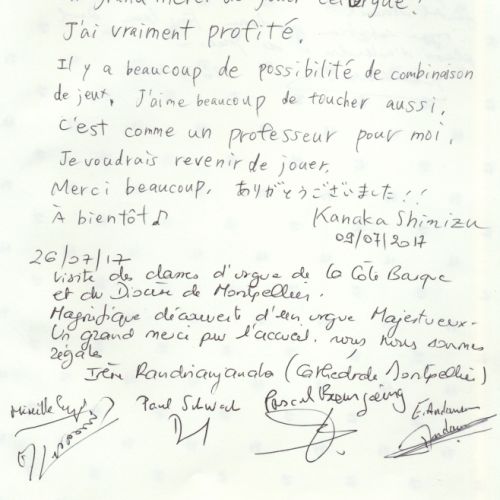 grand merci de jouer cet orgue!
J'ai vraiment profité.
Il y a beaucoup de possibilité de combinaison
de jeux, J'aime beaucoup de toucher aussi,
C'est comme un professeur pour moi,
Je voudrais revenir de jouer,
Merci beaucoup, ありがとうございました!!
À bientôt♪ Kanaka Shimizu
09/07/2017
26/07/17
Visite des classes d'orgue de la Côte Basque
et du Diocèse de Montpellier.
Magnifique découverte d'un orgue Majestueux.
Un grand merci par l'accueil. nous nous sommes
régalés
(Cathédrale Montpellier)
Mireille Paul Schwab Pascal E.